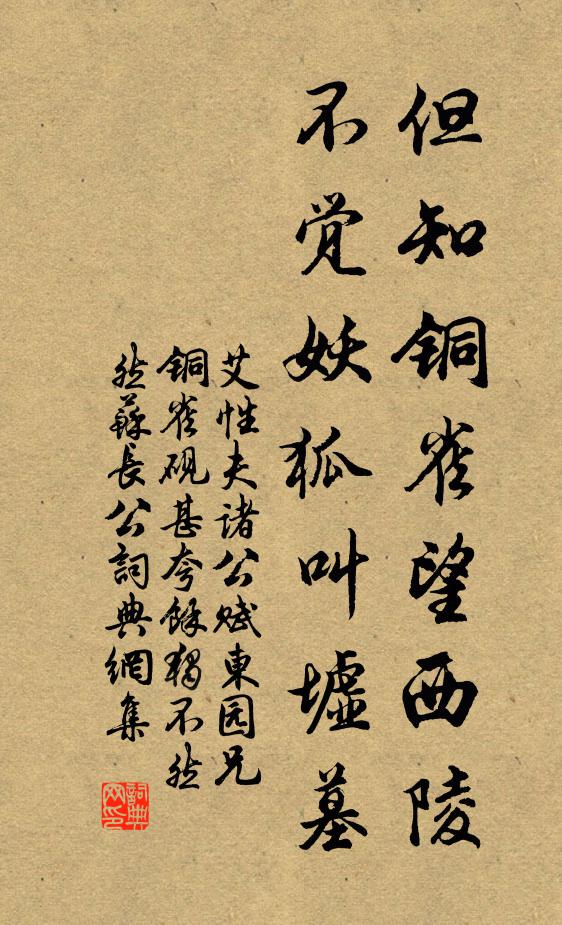 但知铜雀望西陵
不觉妖狐叫墟墓
艾性夫诸公赋東园兄
铜雀砚甚夸馀独不然
苏長公詞典網集
詞典
网印